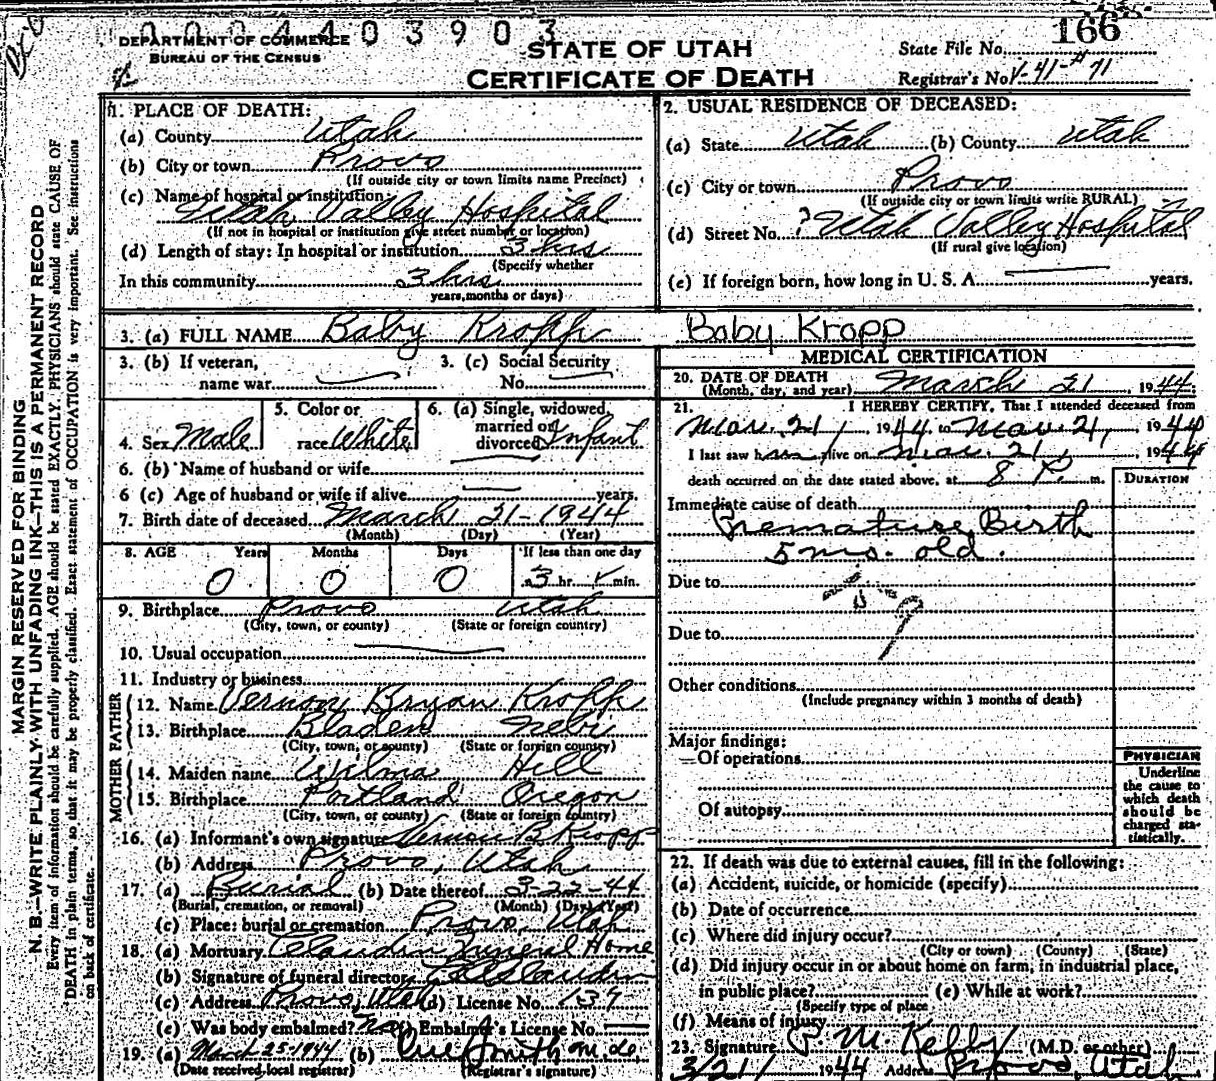 0004403903
166
DEPARTMENT OF COMMERCE
BUREAU OF THE CENSUS
STATE OF UTAH
CERTIFICATE OF DEATH
State File No.
Registrar's No. V-41-#71
MARGIN RESERVED FOR BINDING
N. B.—WRITE PLAINLY WITH UNFADING INK—THIS IS A PERMANENT RECORD
Every item of information should be carefully supplied. AGE should be stated EXACTLY. PHYSICIANS should state CAUSE OF
DEATH in plain terms, so that it may be properly classified. Exact statement of OCCUPATION is very important. See instructions
on back of certificate.
1. PLACE OF DEATH:
(a) County Utah
(b) City or town Provo
(If outside city or town limits name Precinct)
(c) Name of hospital or institution:
Utah Valley Hospital
(If not in hospital or institution give street number or location)
(d) Length of stay: In hospital or institution 3 hrs
(Specify whether
In this community 3 hrs
years, months or days)
2. USUAL RESIDENCE OF DECEASED:
(a) State Utah (b) County Utah
(c) City or town Provo
(If outside city or town limits write RURAL)
(d) Street No. ? Utah Valley Hospital
(If rural give location)
(e) If foreign born, how long in U. S. A. years.
3. (a) FULL NAME Baby Kropp Baby Kropp
3. (b) If veteran, 3. (c) Social Security
name war No.
4. Sex Male 5. Color or race White 6. (a) Single, widowed, married or divorced Infant
6. (b) Name of husband or wife
6 (c) Age of husband or wife if alive years.
7. Birth date of deceased March 21-1944
(Month) (Day) (Year)
8. AGE Years Months Days If less than one day
0 0 0 3 hr. min.
9. Birthplace Provo Utah
(City, town, or county) (State or foreign country)
10. Usual occupation
11. Industry or business
FATHER
12. Name Vernon Bryan Kropp
13. Birthplace Bladen Nebr
(City, town, or county) (State or foreign country)
MOTHER
14. Maiden name Wilma Hill
15. Birthplace Portland Oregon
(City, town, or county) (State or foreign country)
16. (a) Informant's own signature Vernon B. Kropp
(b) Address Provo, Utah
17. (a) Burial (b) Date thereof 3-22-44
(Burial, cremation, or removal) (Month) (Day) (Year)
(c) Place: burial or cremation Provo, Utah
18. (a) Mortuary Claudin Funeral Home
(b) Signature of funeral director
(c) Address Provo, Utah (d) License No. 137
(e) Was body embalmed? No Embalmer's License No.
19. (a) March 25-1944 (b) Smith M.D.
(Date received local registrar) (Registrar's signature)
MEDICAL CERTIFICATION
20. DATE OF DEATH March 21 1944
(Month, day, and year)
21. I HEREBY CERTIFY, That I attended deceased from
Mar. 21, 1944 to Mar. 21, 1944
I last saw him alive on Mar. 21, 1944
death occurred on the date stated above, at 8 P. m.
DURATION
Immediate cause of death
Premature Birth
5 mo. old.
Due to
Due to
Other conditions
(Include pregnancy within 3 months of death)
Major findings:
Of operations
Of autopsy
PHYSICIAN
Underline
the cause to
which death
should be
charged sta-
tistically.
22. If death was due to external causes, fill in the following:
(a) Accident, suicide, or homicide (specify)
(b) Date of occurrence
(c) Where did injury occur?
(City or town) (County) (State)
(d) Did injury occur in or about home on farm, in industrial place,
in public place? (e) While at work?
(Specify type of place
(f) Means of injury
23. Signature P. M. Kelly (M.D. or other)
3/21/1944 Address Provo, Utah